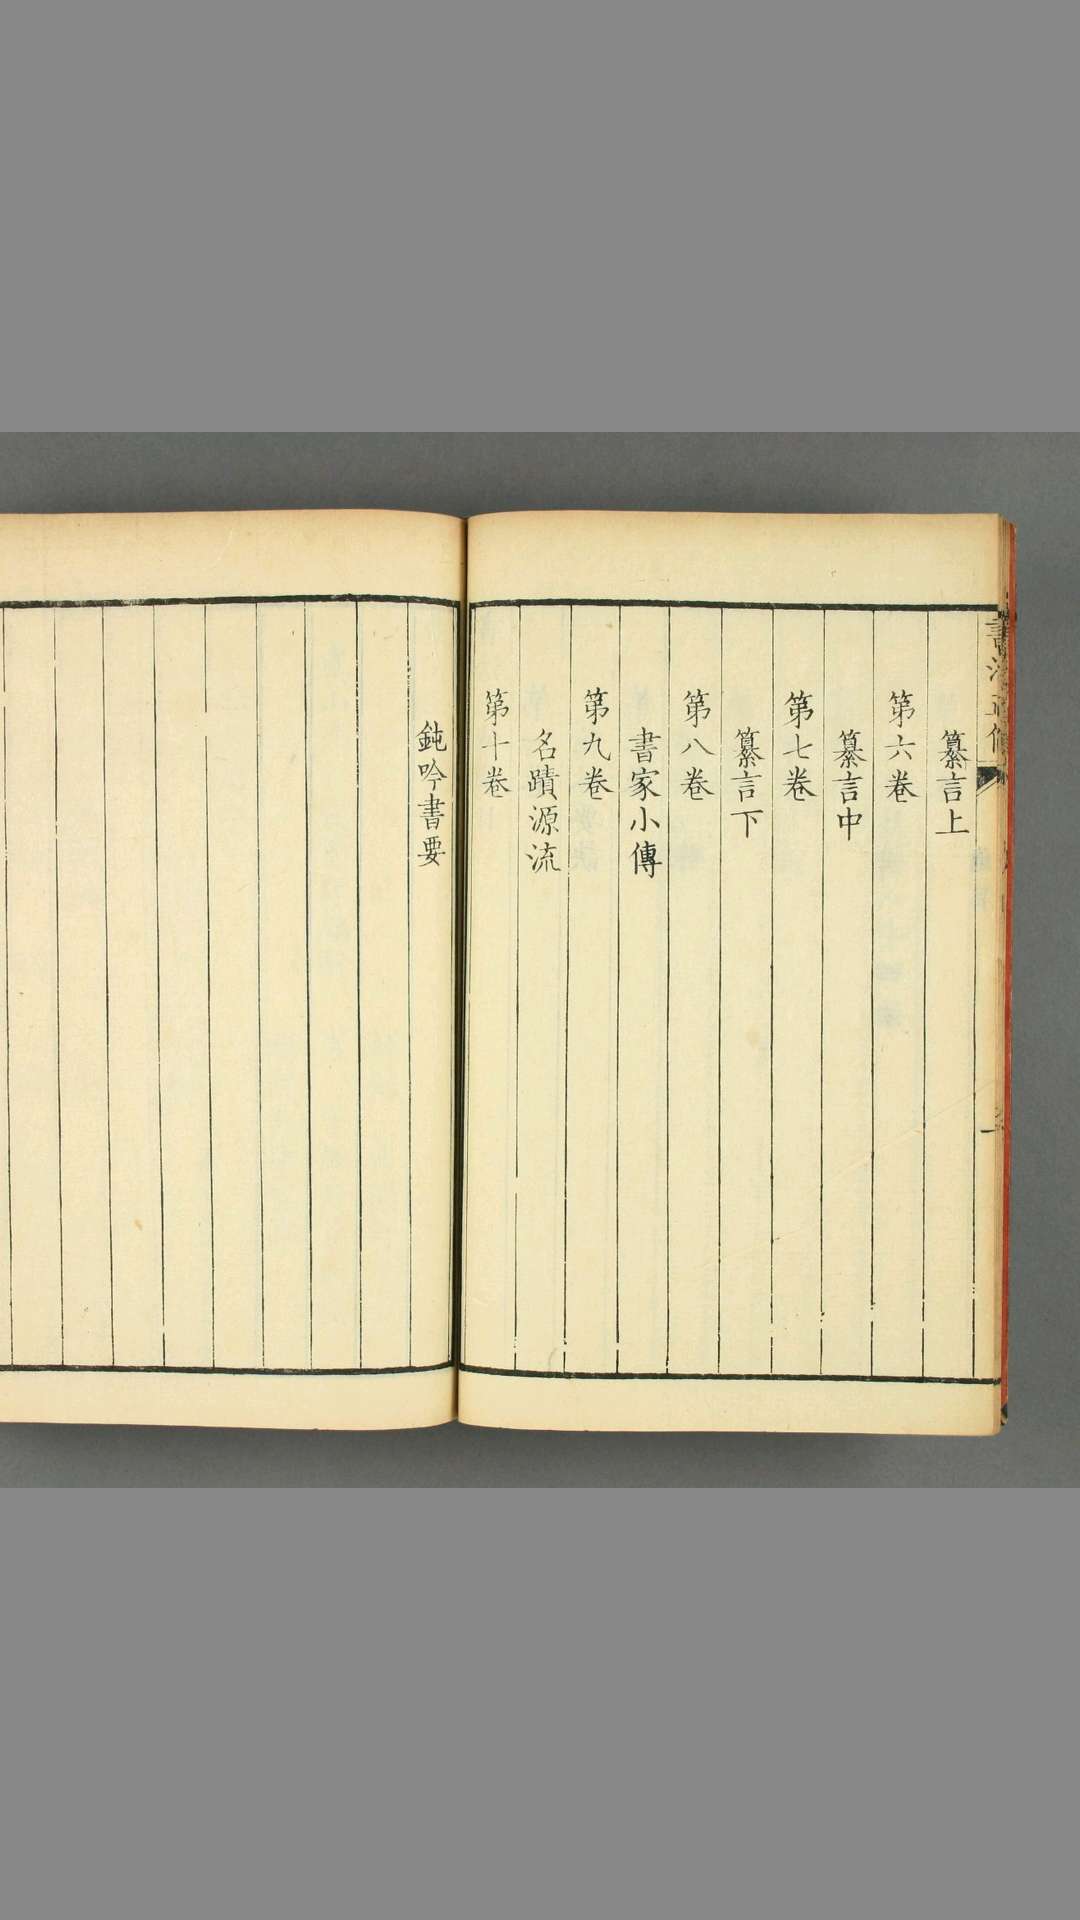 纂言上
第六卷
纂言中
第七卷
纂言下
第八卷
書家小傳
第九卷
名蹟源流
第十卷
鈍吟書要